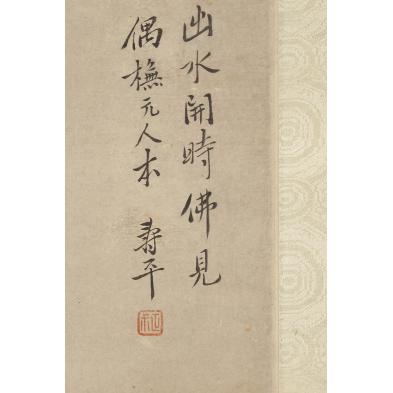 出水開時佛見
偶橅元人本 壽平